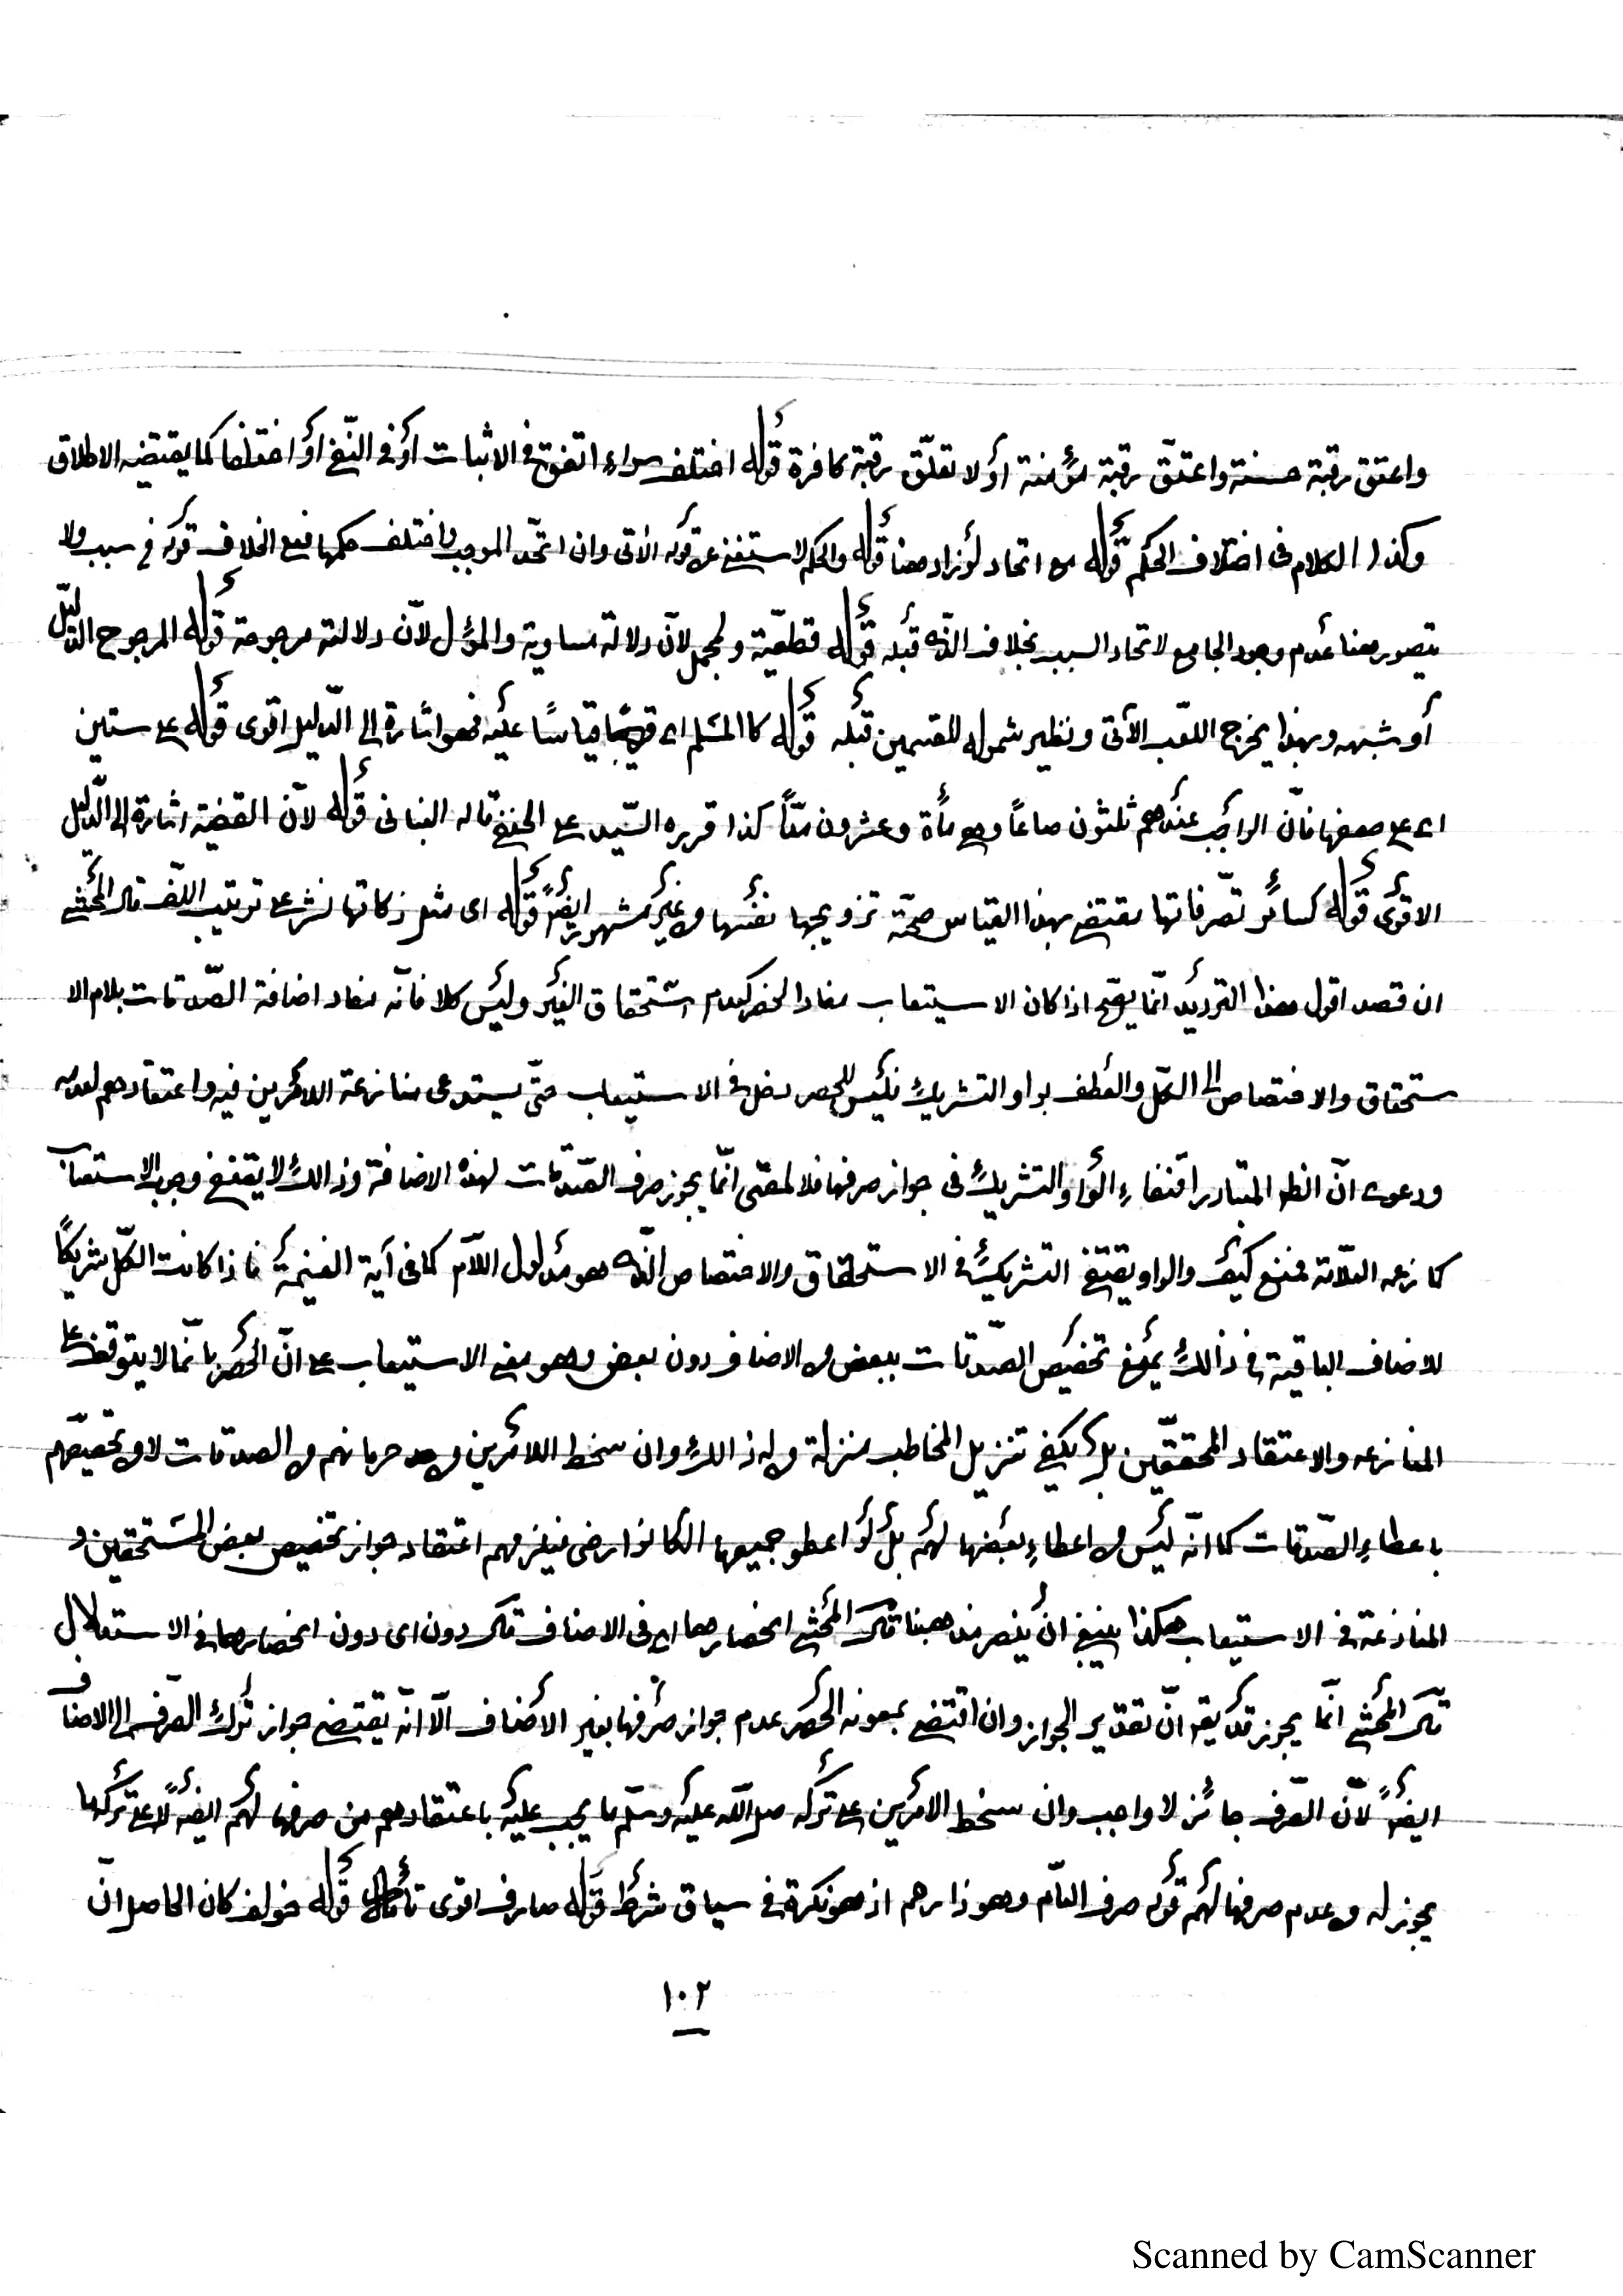 واعتق رقبة حسنة واعتق رقبة مؤمنة أو لا تعتق رقبة كافرة قوله اختلف سواء اتفق في الاثبات أو في النفي أو اختلفا كما يقتضيه الاطلاق
وكذا الكلام في اختلاف الحكم قوله مع اتحاد لو زاد هنا قوله والحكم لاستغنى عن قوله الآتي وان اتحد الموجب واختلف حكمهما فمع الخلاف قوله في سبب ولا
يتصور هنا عدم وجود الجامع لاتحاد السبب بخلاف الذي قبله قوله قطعية ولمجمل لأن دلالته مساوية والمؤل لأن دلالته مرجوحة قوله المرجوح الدليل
أو شبهه وبهذا يخرج اللعب الآتي ونظير شموله للقسمين قبله قوله كالمسلم اى قياسا عليه فهو اشارة إلى الدليل اقوى قوله على ستين
اى على فان الواجب عندهم ثلثون صاعاً وهي مأة وعشرون مدّاً كذا قرره السيد على الحنفي قاله البناني قوله لأن القضية اشارة إلى الدليل
الاقوى قوله كسائر تصرفاتها مقتضى بهذا القياس صحة تزويجها نفسها من غير مشهور ايضاً قوله اى مثل زكاتها نشر على ترتيب اللف قال المحشي
ان قصد اقول هذا الترديد انما يصح اذا كان الاستيعاب مفاد الحصر كعدم استحقاق الغير وليس كلا فانه مفاد اضافة الصدقات بلام الا
ستحقاق والاختصاص إلى الكل والعطف بواو التشريك فليس للحصر دخل في الاستيعاب حتى يستدعى منازعة اللامزين فيه واعتقادهم لعدمه
ودعوى ان المتبادر اقتضاء الواو التشريك في جواز صرفها فالمعنى انما يجوز صرف الصدقات لهذه الاضافة وذالك لا يقتضى وجوب الاستيعاب
كما زعمه الثلاثة فمنع كيف والواو يقتضى التشريك في الاستحقاق والاختصاص الذي هو مدلول اللام كما في آية الغنيمة فاذا كانت الكل شريكاً
للاضاف الباقية في ذالك يمنع تخصيص الصدقات ببعض من الاصناف دون بعض وهو معنى الاستيعاب على ان الحصر بانما لا يتوقف على
المنازعة والاعتقاد المحققين بل يكفى تنزيل المخاطب منزلة من له ذالك وان سخط اللامزين من حرمانهم من الصدقات لا من تخصيصهم
باعطاء الصدقات كما انه ليس من اعطاء بعضها لهم بل لو اعطو جميعها لكانوا ارضى فيلزمهم اعتقاد جواز تخصيص بعض المستحقين و
المنازعة في الاستيعاب هكذا ينبغى أن ههنا قال المحشي انحصارهما اى في الاصناف قال دون اى دون انحصارهما في الاستقلال
قال المحشي انما يجوز قد يقه ان تقدير الجواز وان اقتضى بمعونة الحصر عدم جواز صرفها بغير الأصناف الا انه يقتضى جواز ترك الصرف إلى الاصناف
ايضاً لأن الصرف جائز لا واجب وان سخط الامزين على تركه صلى الله عليه وسلم ما يجب عليه باعتقادهم من صرفها لهم ايضاً لا على تركه ما
يجوز له من عدم صرفها لهم قوله صرف العام وهو ذا رحم اذ هو نكرة في سياق شرط قوله صارف اقوى تأمل قوله خولف كان الحاصل ان
١٠٢
Scanned by CamScanner